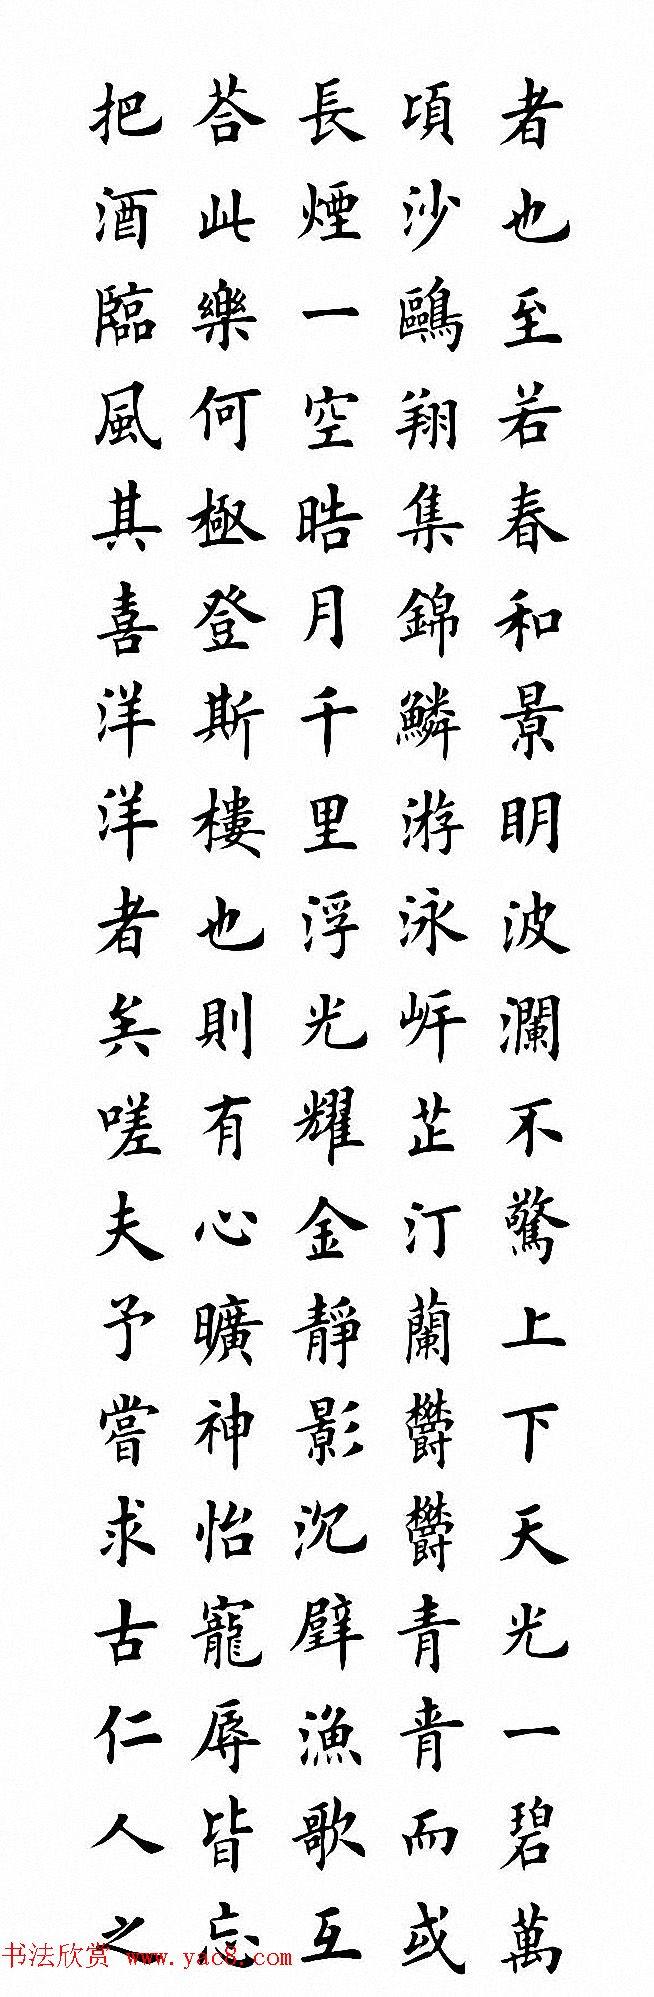 者也至若春和景明波瀾不驚上下天光一碧萬
頃沙鷗翔集錦鱗游泳岸芷汀蘭鬱鬱青青而或
長煙一空皓月千里浮光耀金靜影沉璧漁歌互
荅此樂何極登斯樓也則有心曠神怡寵辱皆忘
把酒臨風其喜洋洋者矣嗟夫予嘗求古仁人之
书法欣赏 www.yac8.com